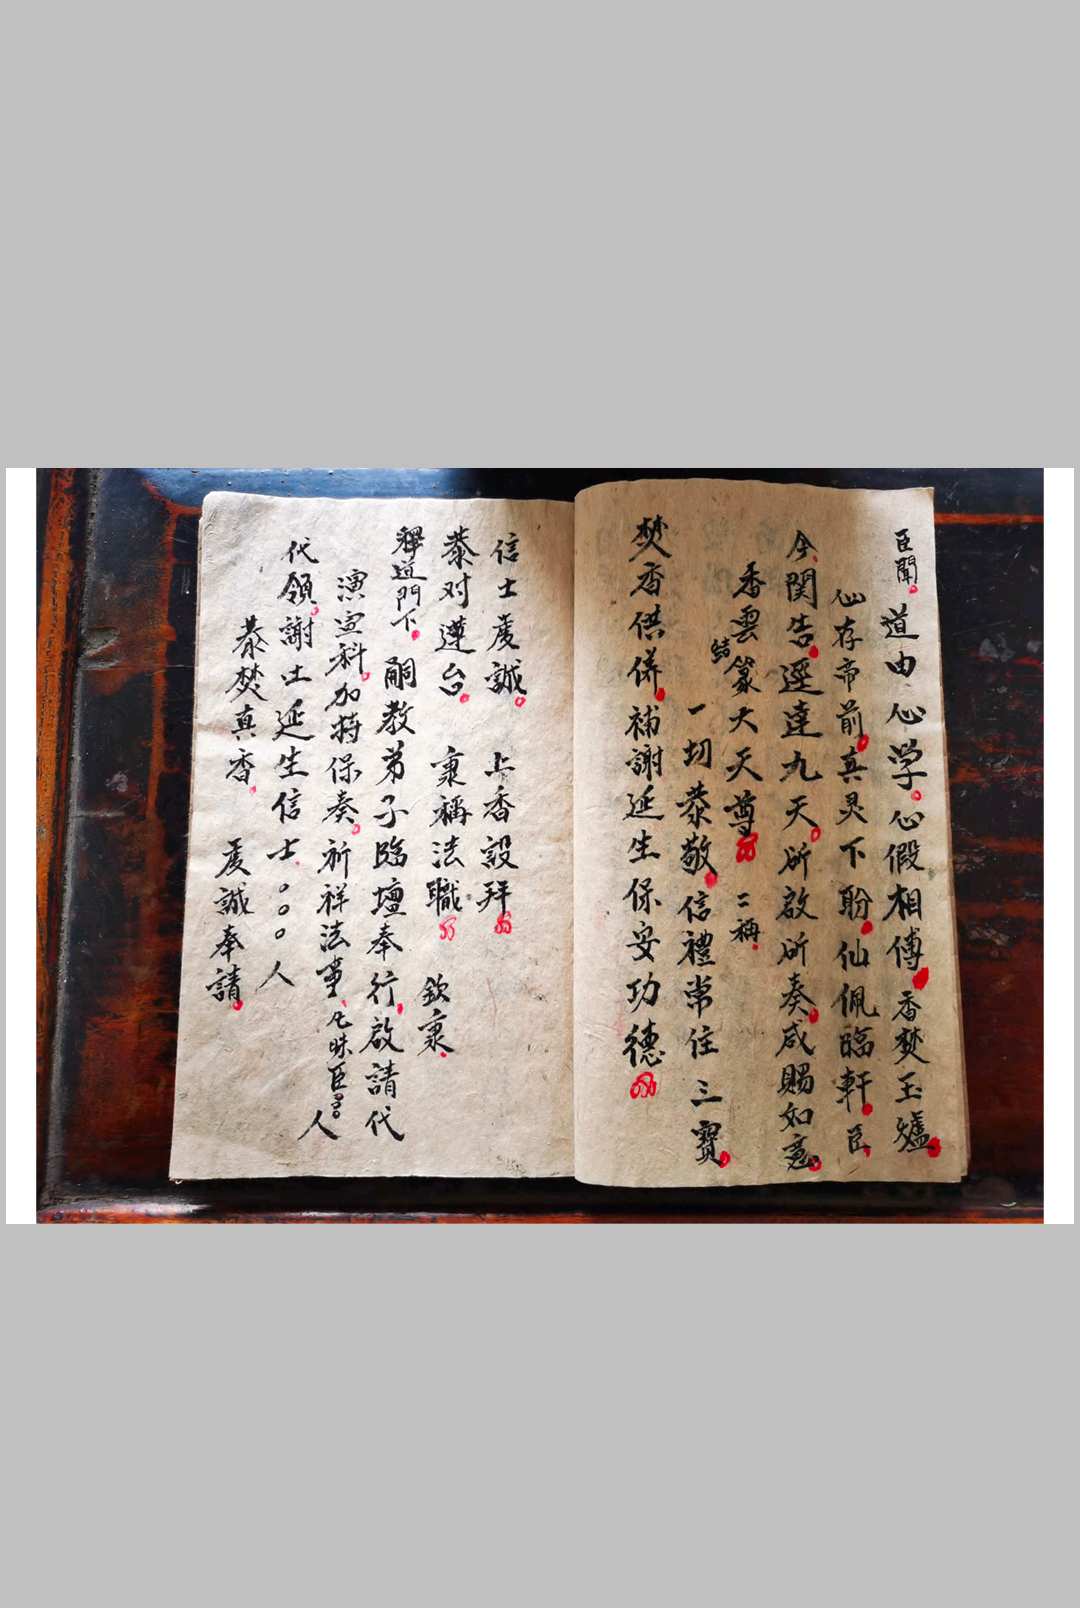 臣聞道由心学心假相傳香焚玉爐
心存帝前真灵下盼仙佩臨軒臣
今関告逕達九天所啟所奏咸賜如意
香雲結篆大天尊 二稱
一切恭敬信禮常住三寶
焚香供併補謝延生保安功德
信士虔誠 上香設拜
恭对蓮台 稟稱法職 欽稟
釋道門下嗣教弟子臨壇奉行啟請代
演宣科加持保奏祈祥法事凡昧臣〇〇人
代領謝土延生信士〇〇〇人
恭焚真香 虔誠奉請